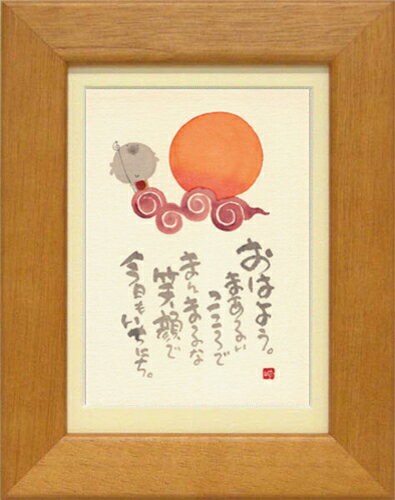 おはよう。
まあるい
こころで
まんまるな
笑顔で
今日もいちにち。